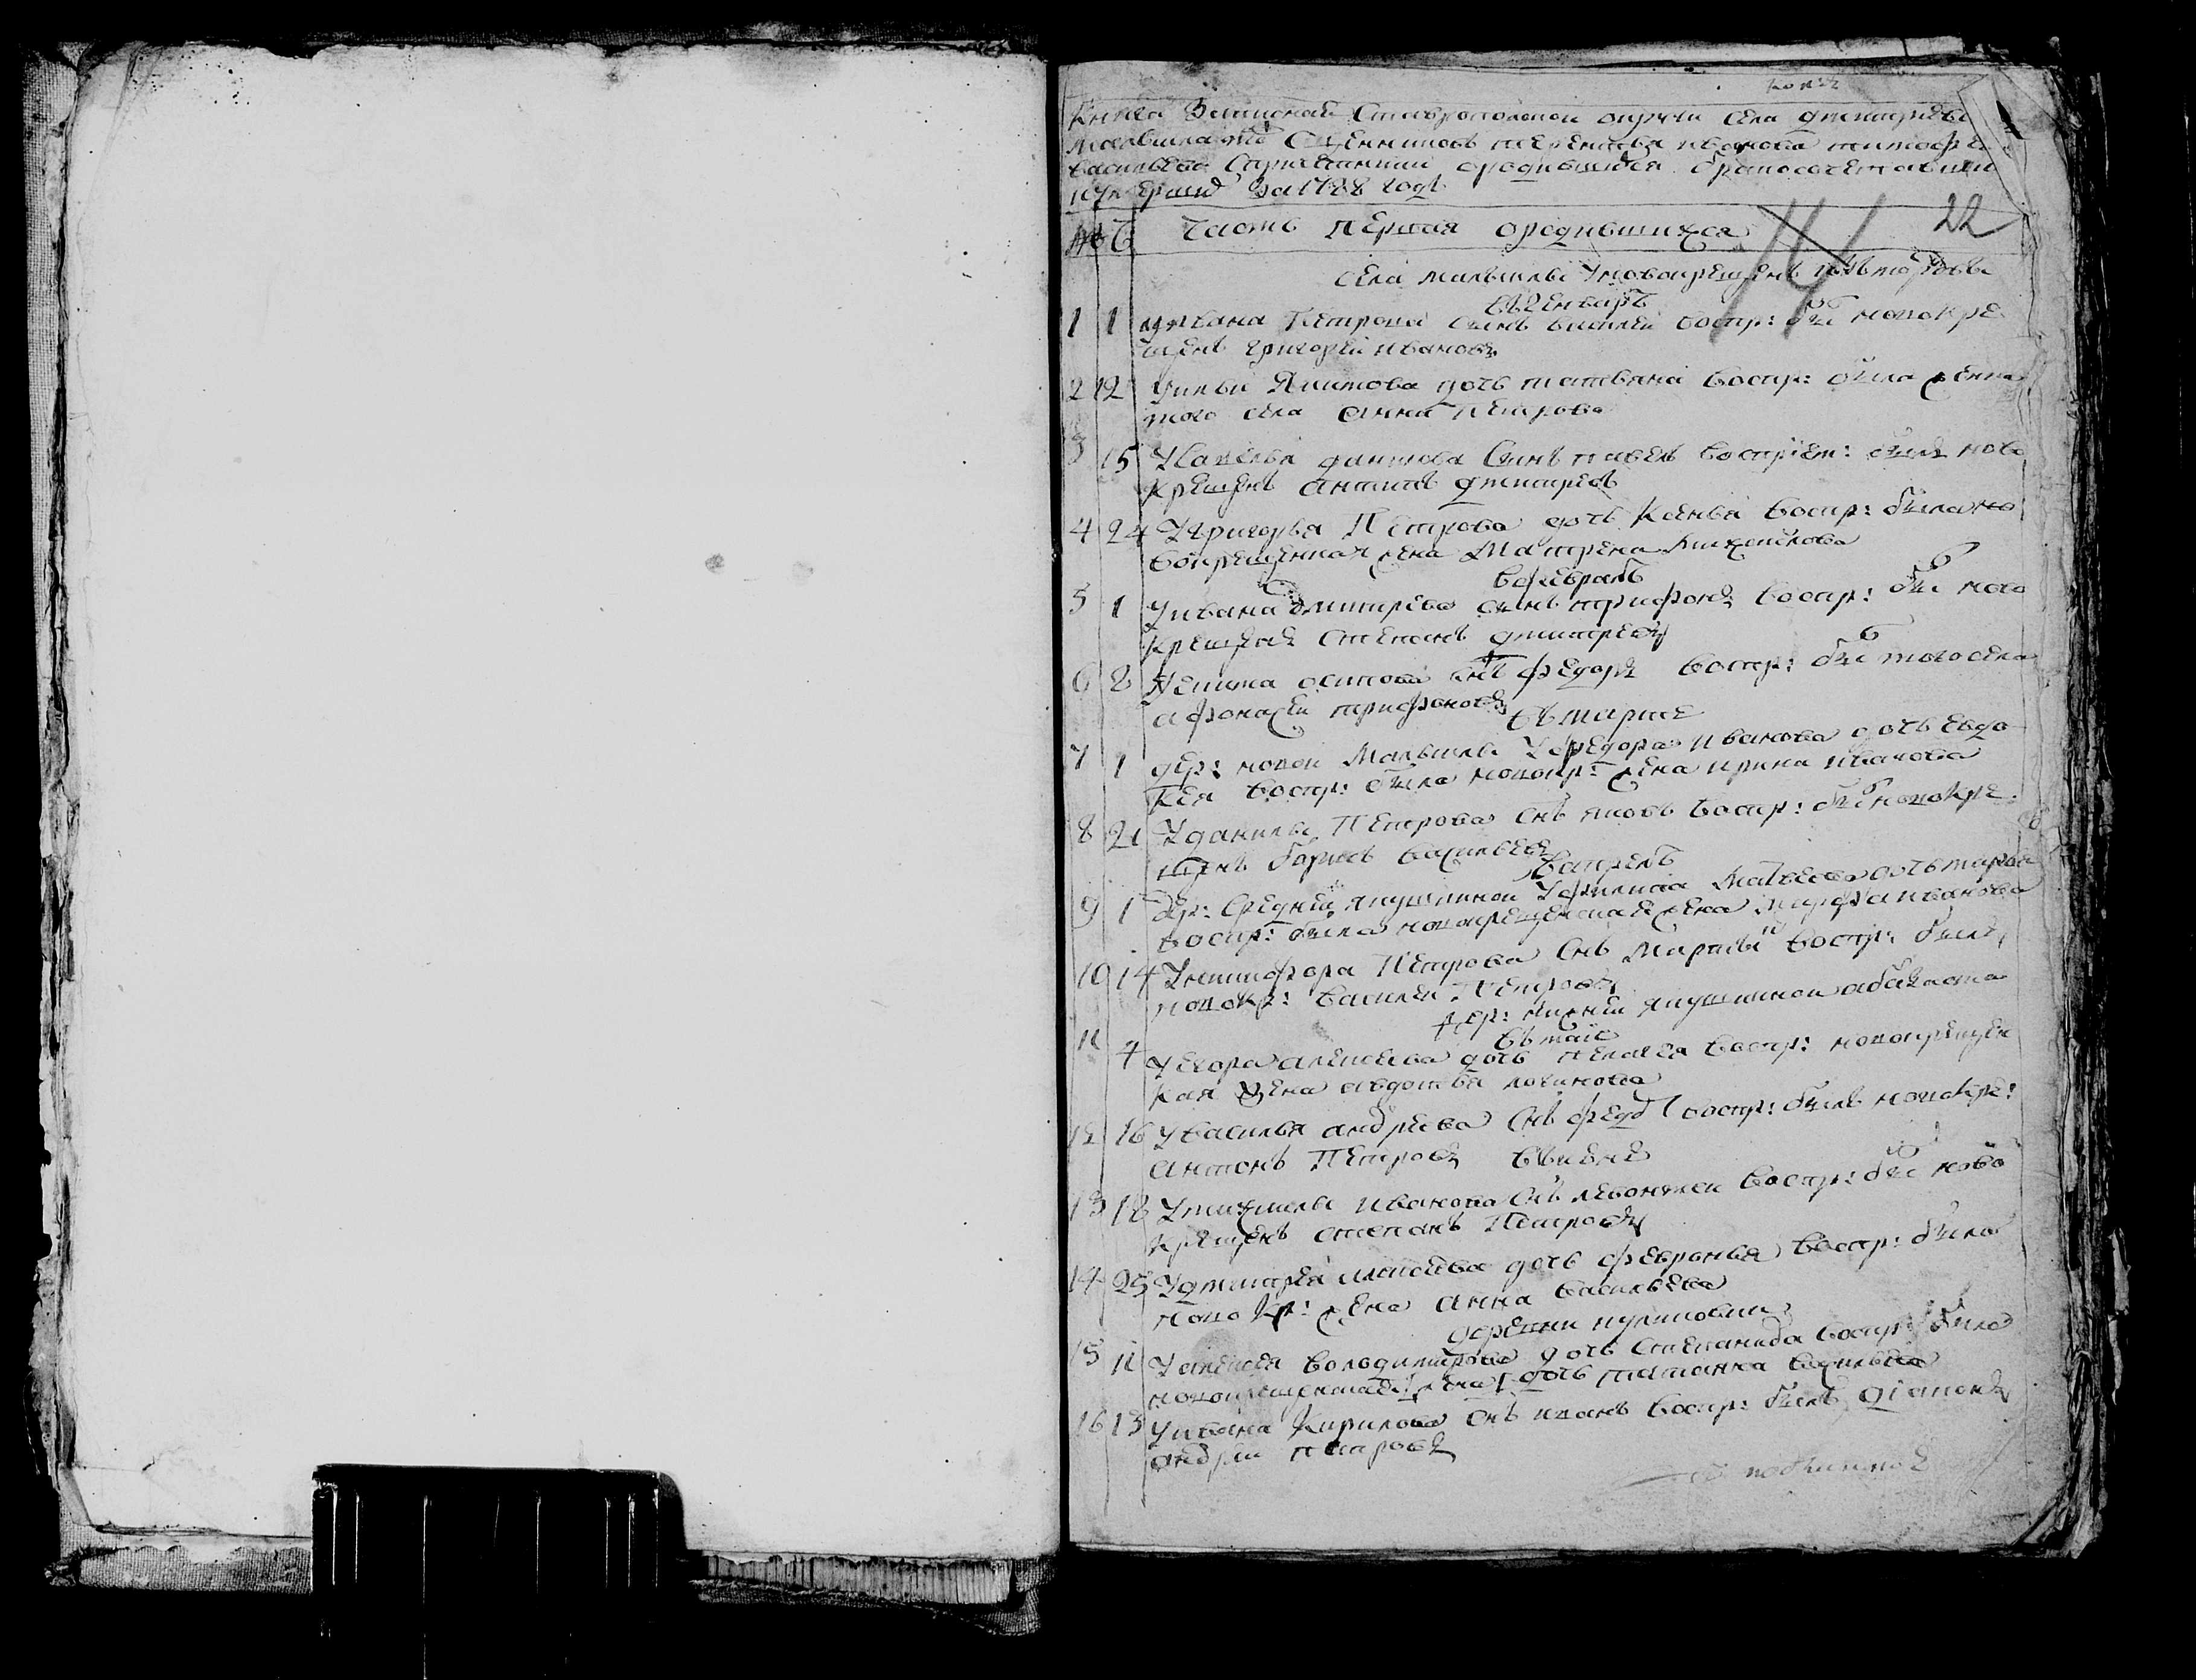 Книга Записная Ставропольской округи села дмитриевс
Малыкла тоъ Сщенниковъ терентья иванова тимофе
васильева Справщиками ородившихся бракосочетавши
иумершихъ за 1788 годъ
22
№ Ч Часть первая ородившихся
села малыклы уновокрещенъ
вгенваре
1 1 уивана Петрова сынъ василей воспр: былъ новокре
щенъ григорей ивановъ
2 12 Уильи Якимова дочь татьяна воспр: была жена
того села анна Петрова
3 15 Усавелья данилова Сынъ павелъ воспрiем: былъ ново
крещенъ антипъ дмитревъ
4 24 Угригорья Петрова дочь Ксенья воспр: была но
вокрещенная жена Матрена
вфеврале
5 1 Уивана дмитрева сынъ трифонъ воспр: былъ ново
крещенъ степанъ дмитревъ
6 8 осипова снъ федоръ воспр: былъ того села
афонасей трифоновъ
въмарте
7 1 дер: новой Малыклы Уфедора иванова дочь евдо
кея воспр: была новокр: жена ирина иванова
8 21 Уданилы Петрова снъ яковъ воспр: былъ новокре
щенъ борисъ васильевъ
вапреле
9 1 дер: Средней якушкиной Уфилипа Матвеева дочь марфа
воспр: была новокрещенская жена марфа иванова
10 14 Уникифора Петрова снъ Мартый воспр: былъ
новокр: василей Петровъ
дер: нижней якушкиной
въмаiе
11 4 Уегора алексеева дочь пелагея воспр: новокрещен
кая жена авдотья логинова
12 16 Увасилья андреева снъ федо воспр: былъ новокре:
антонъ Петровъ
въиюне
13 18 Умихаилы иванова снъ левонтеи воспр: былъ ново
крещенъ степанъ Петровъ
14 25 Удмитрея дочь февронья воспр: была
новокр: жена анна васильева
деревни куликовки
15 11 Уалексея володимирова дочь Степанида воспр: была
новокрещенская дочь татьяна васильева
16 13 Уивана Кирилова снъ иванъ воспр: былъ дiаконъ
андрей петровъ